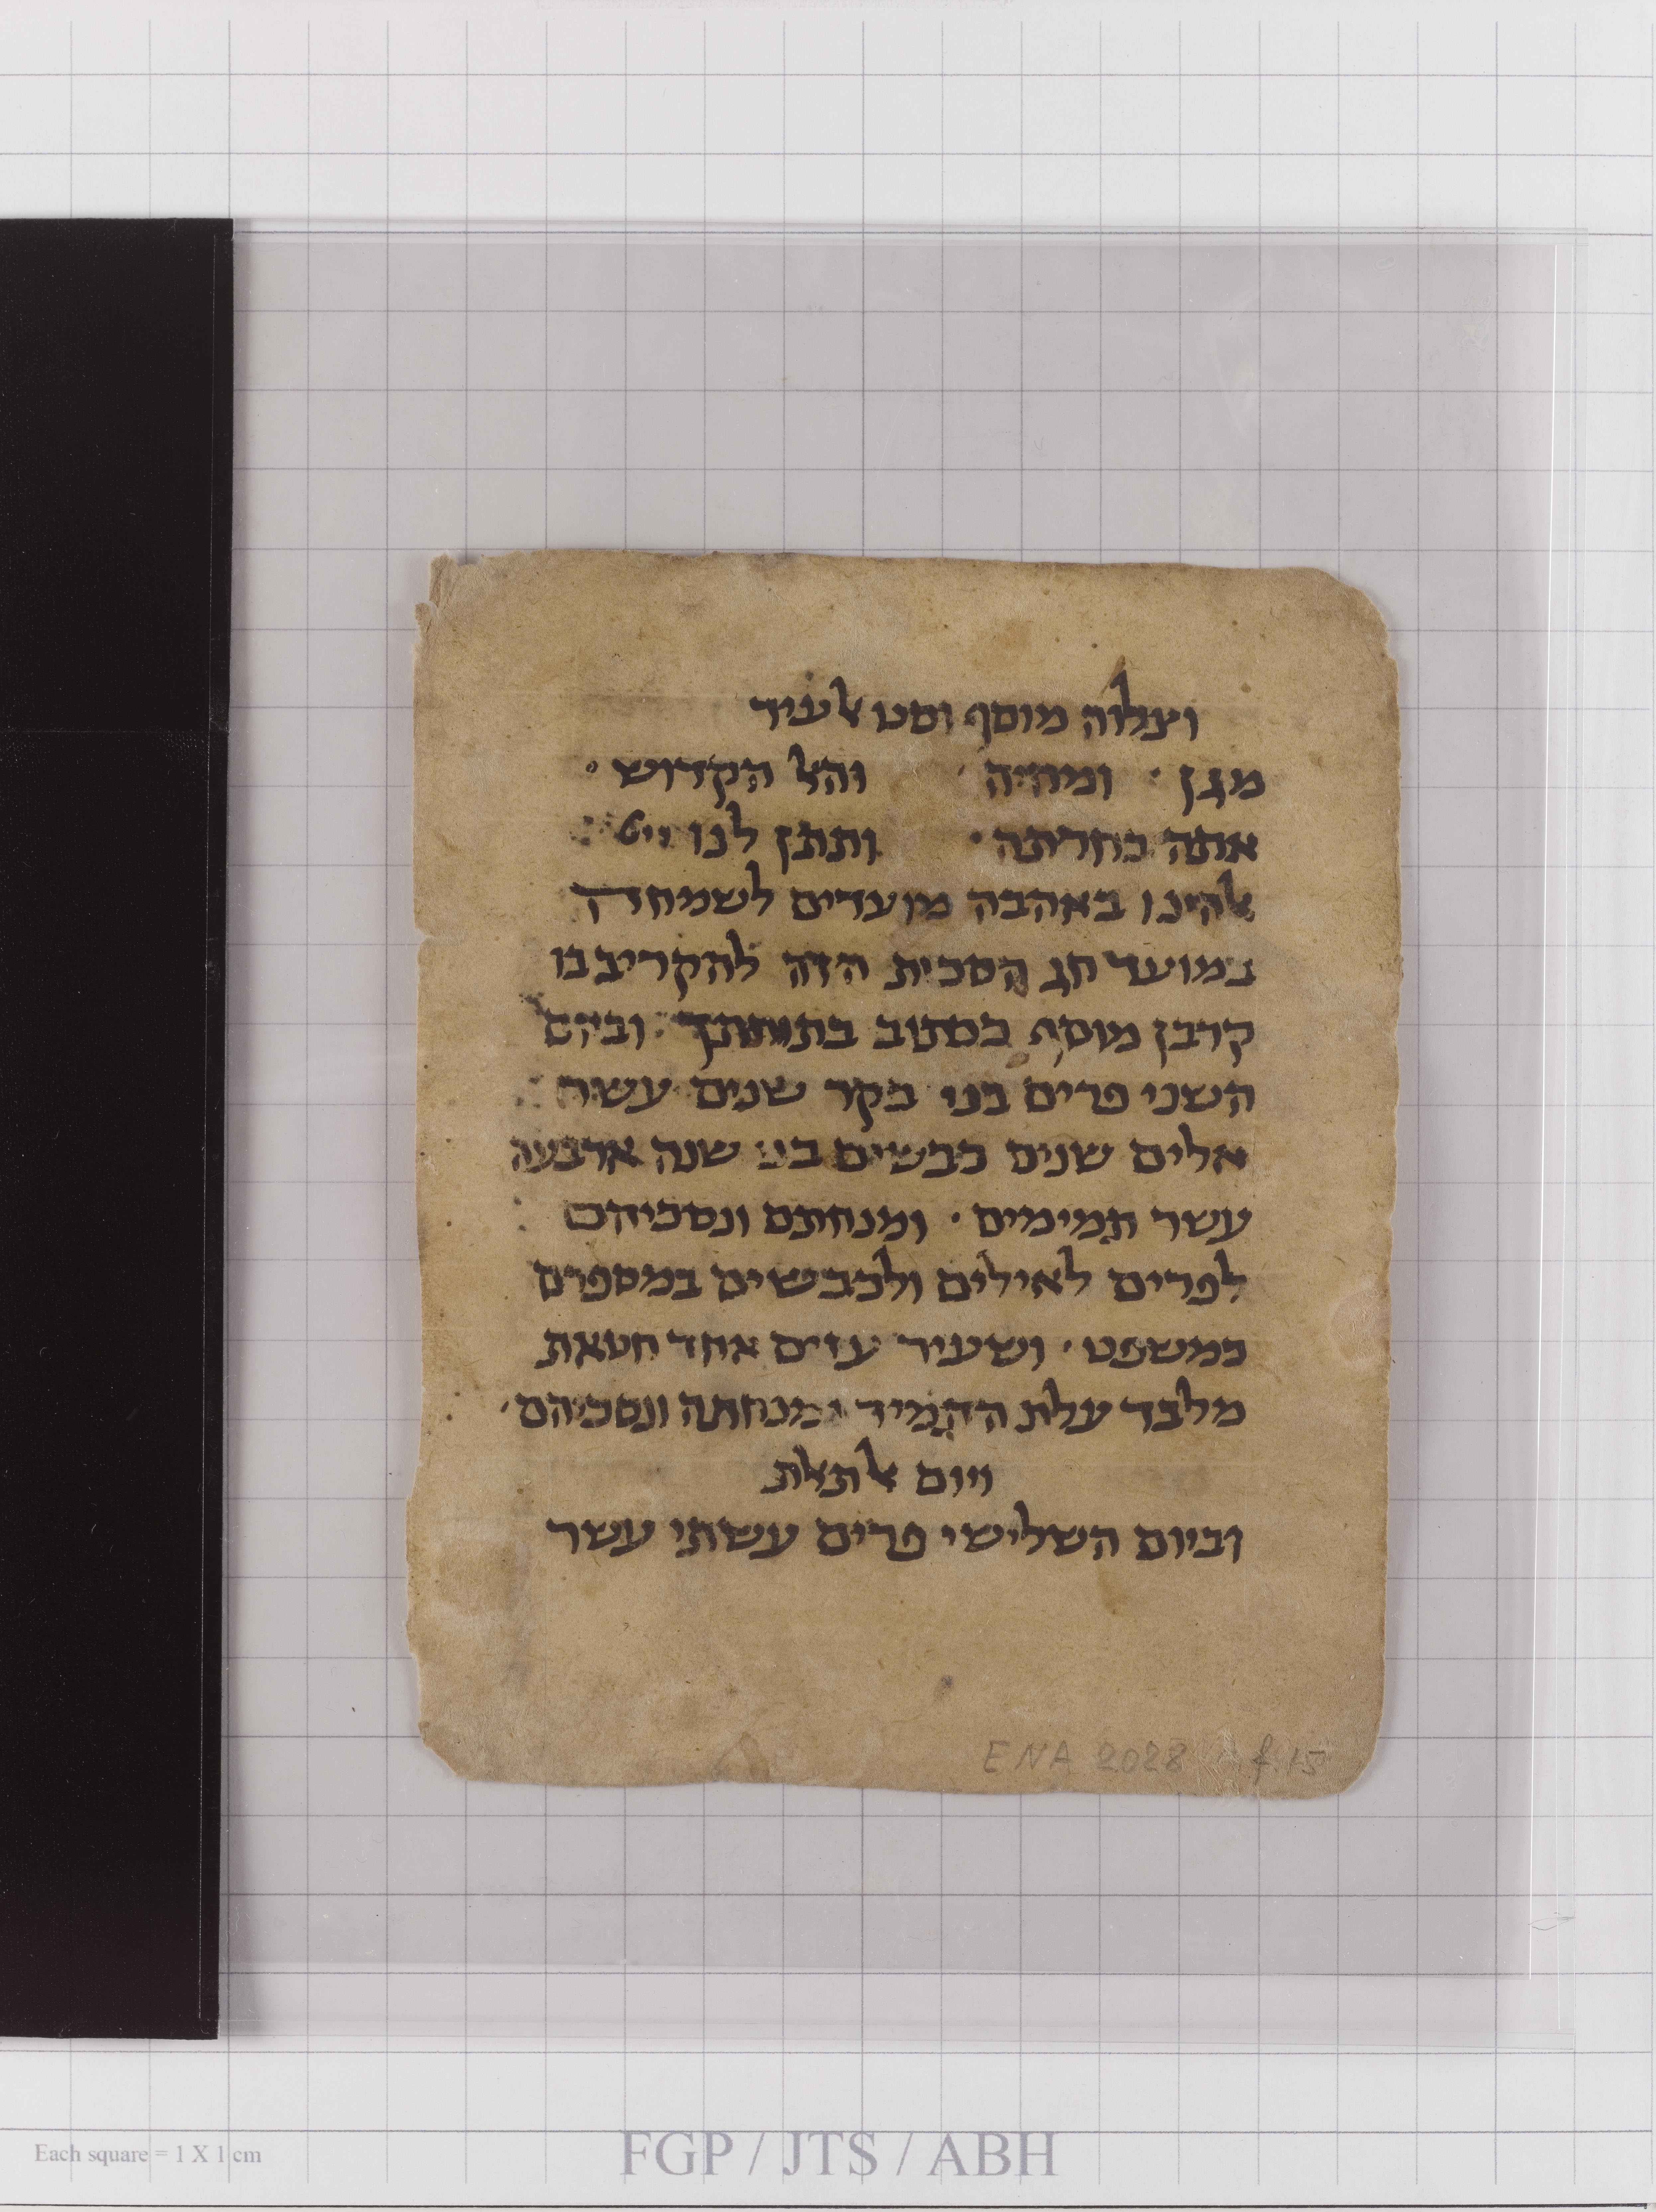 וצלוה מוסף וסט אלעיד
מגן ׳ ומחיה ׳ והל הקדוש ׳
אתה בחרתה ׳ ותתן לנו ייט
אלהינו באהבה מועדים לשמחה
במועד חג הסכות הזה להקריב בו
קרבן מוסף ככתוב בתורתך ׳ וביום
השני פרים בני בקר שנים עשר
אלים שנים כבשים בני שנה ארבעה
עשר תמימים ׳ ומנחתם ונסכיהם
לפרים לאילים ולכבשים במספרם
כמשפט ׳ ושעיר עזים אחד חטאת
מלבד עלת התמיד ומנחתה ונסכיהם ׳
ויום אלתאלת
וביום השלישי פרים עשתי עשר
ENA 2028 f. 15
Each square = 1 X 1 cm
FGP / JTS / ABH